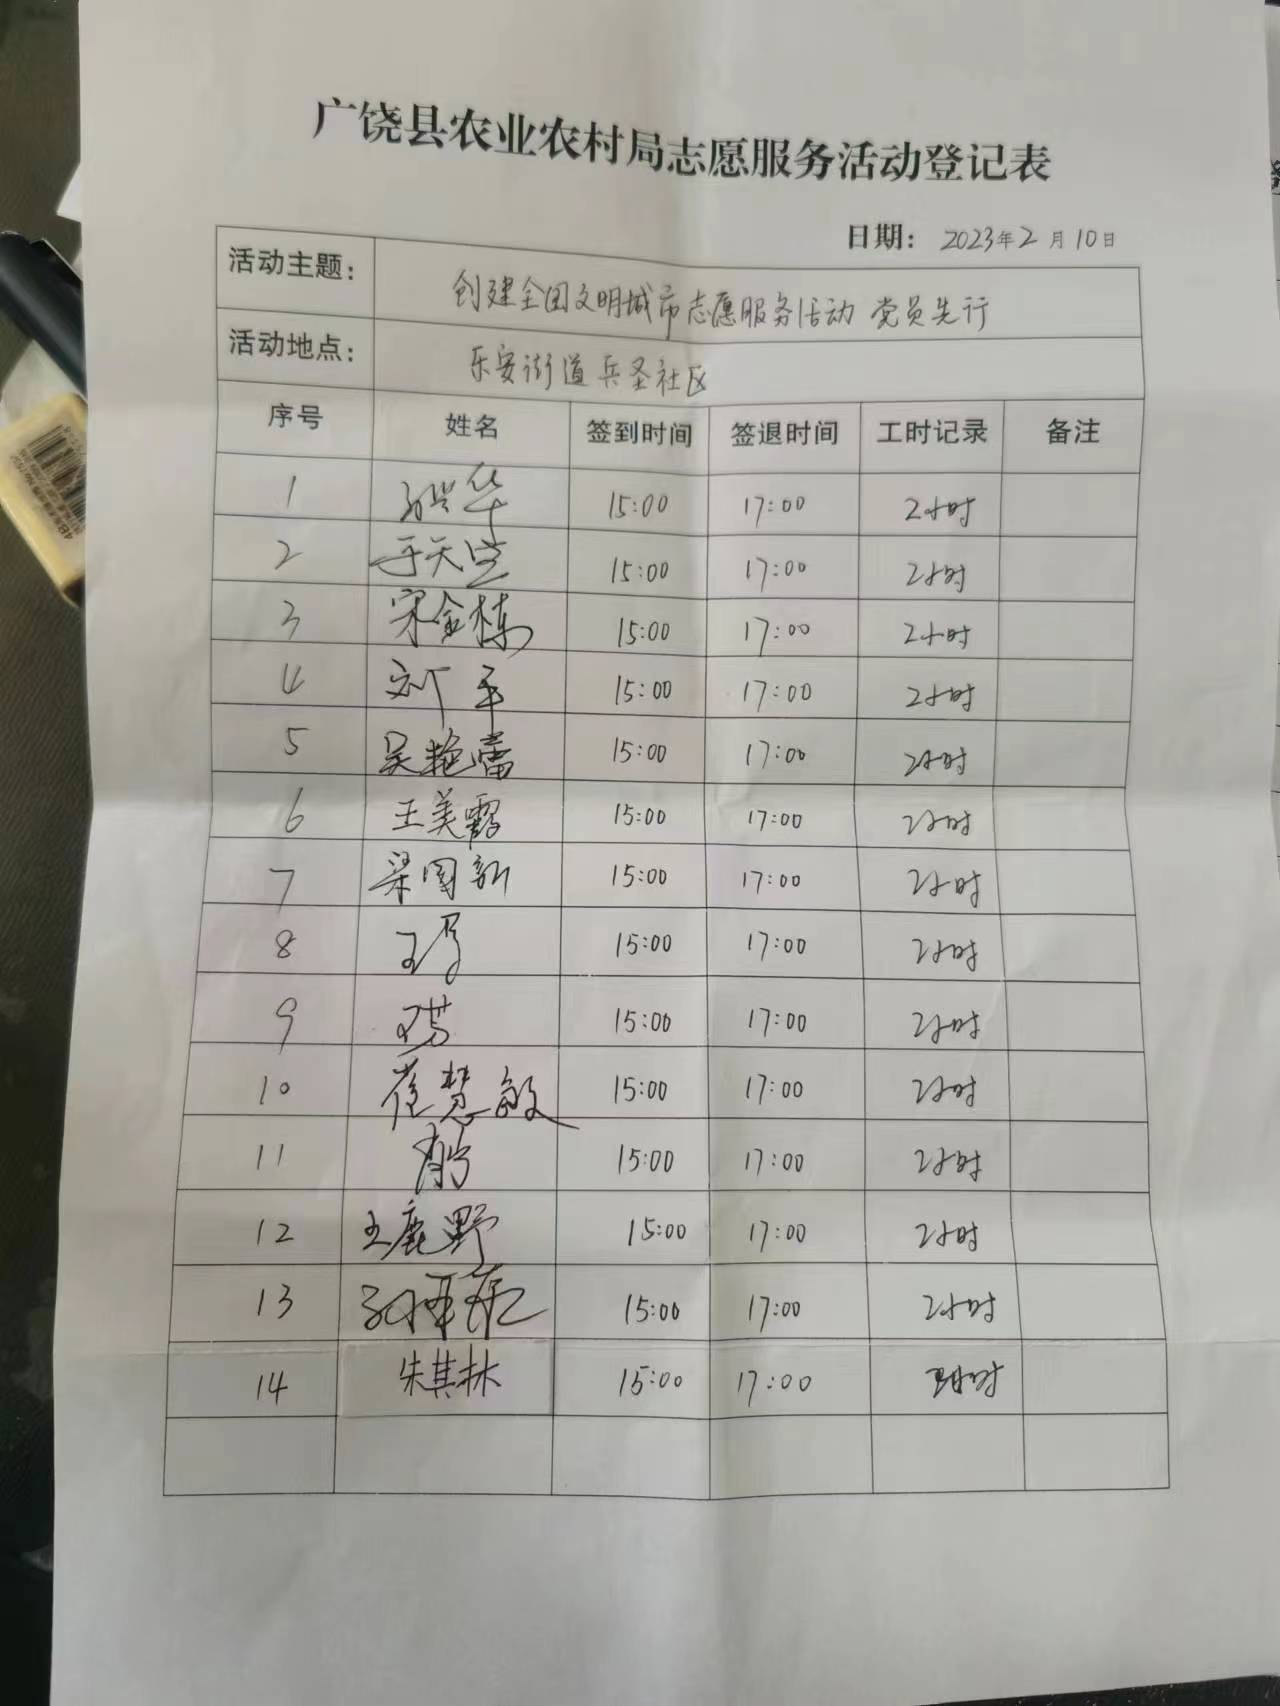 广饶县农业农村局志愿服务活动登记表
日期： 2023年2月10日
活动主题： 创建全国文明城市志愿服务活动 党员先行
活动地点： 乐安街道兵圣社区
序号 姓名 签到时间 签退时间 工时记录 备注
1 华 15:00 17:00 2小时
2 于天 15:00 17:00 2小时
3 宋金栋 15:00 17:00 2小时
4 刘平 15:00 17:00 2小时
5 吴艳蕾 15:00 17:00 2小时
6 王美霞 15:00 17:00 2小时
7 梁国新 15:00 17:00 2小时
8 15:00 17:00 2小时
9 15:00 17:00 2小时
10 崔慧敏 15:00 17:00 2小时
11 15:00 17:00 2小时
12 王鹿野 15:00 17:00 2小时
13 15:00 17:00 2小时
14 朱其林 15:00 17:00 小时